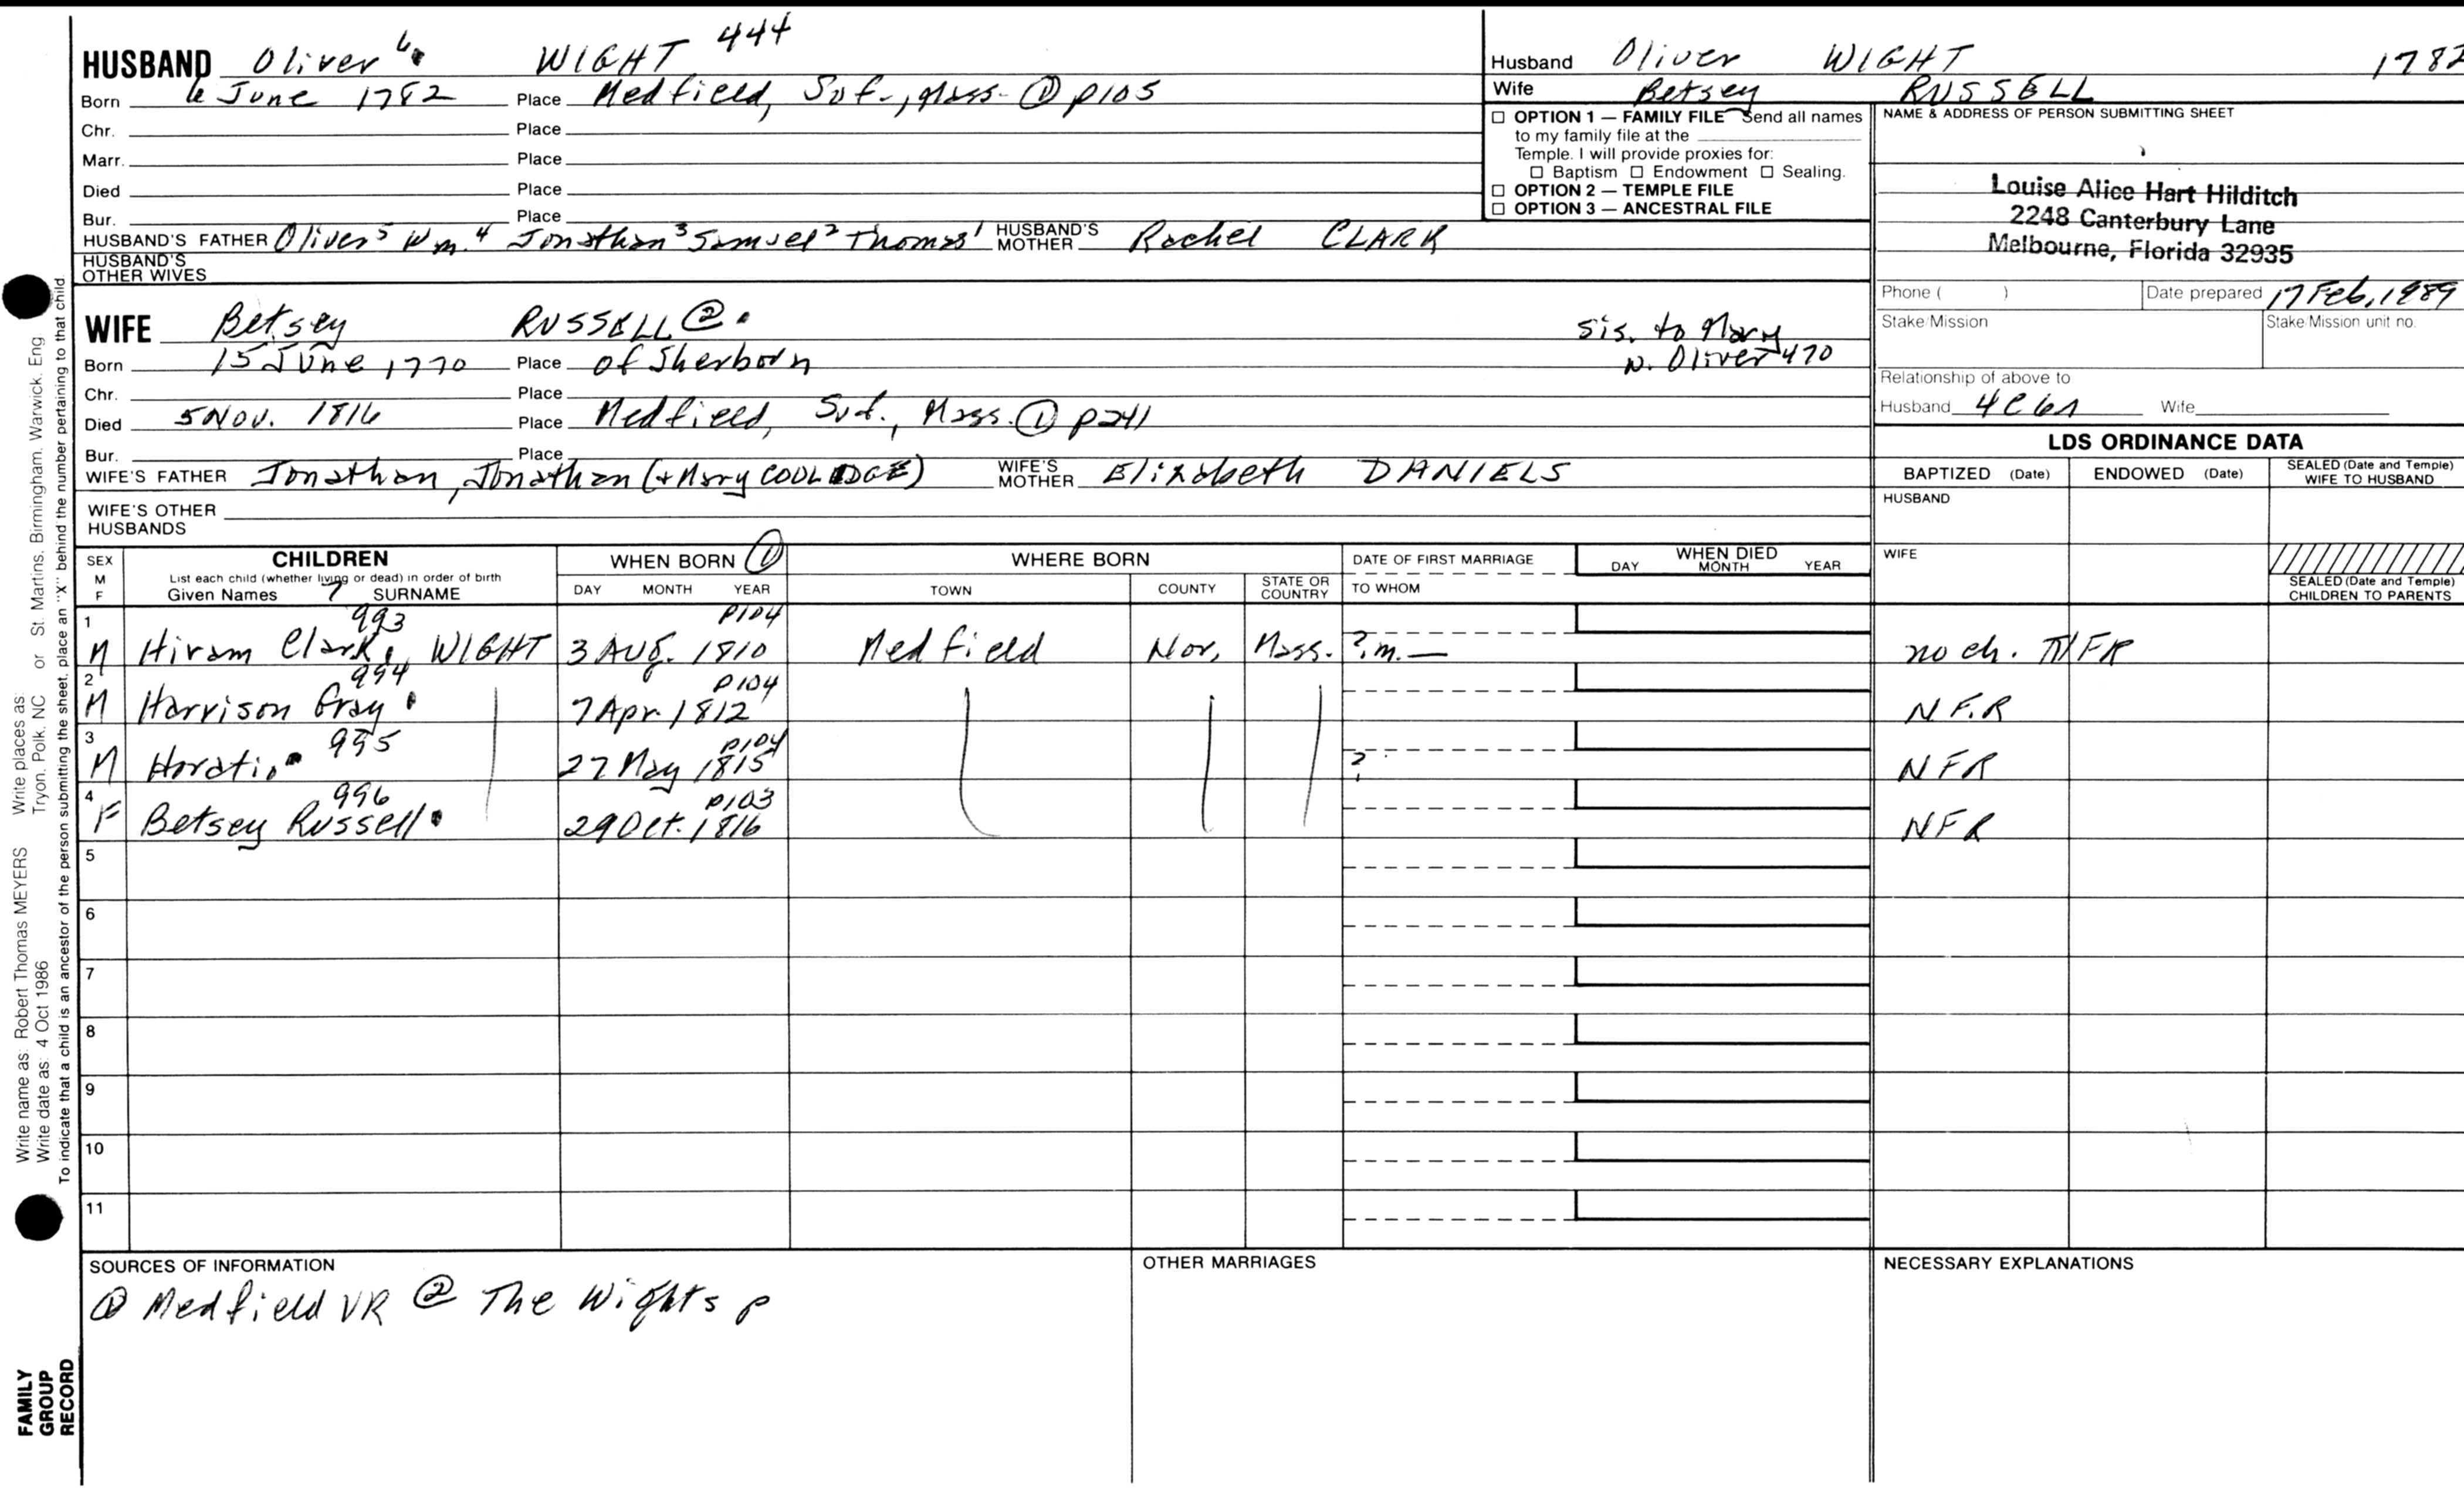 HUSBAND Oliver 6. WIGHT 444
Born 6 June 1782 Place Medfield, Suf., Mass. ① p105
Chr. Place
Marr. Place
Died Place
Bur. Place
HUSBAND'S FATHER Oliver 5 Wm. 4 Jonathan 3 Samuel 2 Thomas 1 HUSBAND'S MOTHER Rachel CLARK
HUSBAND'S OTHER WIVES
WIFE Betsey RUSSELL ② . sis. to Mary
Born 15 June 1770 Place of Sherborn w. Oliver 470
Chr. Place
Died 5 Nov. 1816 Place Medfield, Suf., Mass. ① p241
Bur. Place
WIFE'S FATHER Jonathan, Jonathan (+ Mary COOLIDGE) WIFE'S MOTHER Elizabeth DANIELS
WIFE'S OTHER HUSBANDS
Husband Oliver WIGHT 1782
Wife Betsey RUSSELL
☐ OPTION 1 — FAMILY FILE Send all names
to my family file at the
Temple. I will provide proxies for:
☐ Baptism ☐ Endowment ☐ Sealing.
☐ OPTION 2 — TEMPLE FILE
☐ OPTION 3 — ANCESTRAL FILE
NAME & ADDRESS OF PERSON SUBMITTING SHEET
Louise Alice Hart Hilditch
2248 Canterbury Lane
Melbourne, Florida 32935
Phone ( ) Date prepared 17 Feb, 1989
Stake/Mission Stake/Mission unit no.
Relationship of above to
Husband 4C6R Wife
LDS ORDINANCE DATA
BAPTIZED (Date) ENDOWED (Date) SEALED (Date and Temple) WIFE TO HUSBAND
HUSBAND
WIFE
SEALED (Date and Temple) CHILDREN TO PARENTS
SEX M F
CHILDREN
List each child (whether living or dead) in order of birth
Given Names 7 SURNAME
WHEN BORN ①
DAY MONTH YEAR
WHERE BORN
TOWN COUNTY STATE OR COUNTRY
DATE OF FIRST MARRIAGE
TO WHOM
WHEN DIED
DAY MONTH YEAR
1 993 p104
M Hiram Clark, WIGHT 3 Aug. 1810 Medfield Nor, Mass. ?m.— no ch. NFR
2 994 p104
M Harrison Gray 7 Apr. 1812 NF.R
3 995 p104
M Horatio 27 May 1815 ? NFR
4 996 p103
F Betsey Russell 29 Oct. 1816 NFR
5
6
7
8
9
10
11
SOURCES OF INFORMATION
① Medfield VR ② The Wights p
OTHER MARRIAGES
NECESSARY EXPLANATIONS
Write name as: Robert Thomas MEYERS Write places as: Tryon, Polk, NC or St. Martins, Birmingham, Warwick, Eng
Write date as: 4 Oct 1986
To indicate that a child is an ancestor of the person submitting the sheet, place an "X" behind the number pertaining to that child.
FAMILY
GROUP
RECORD